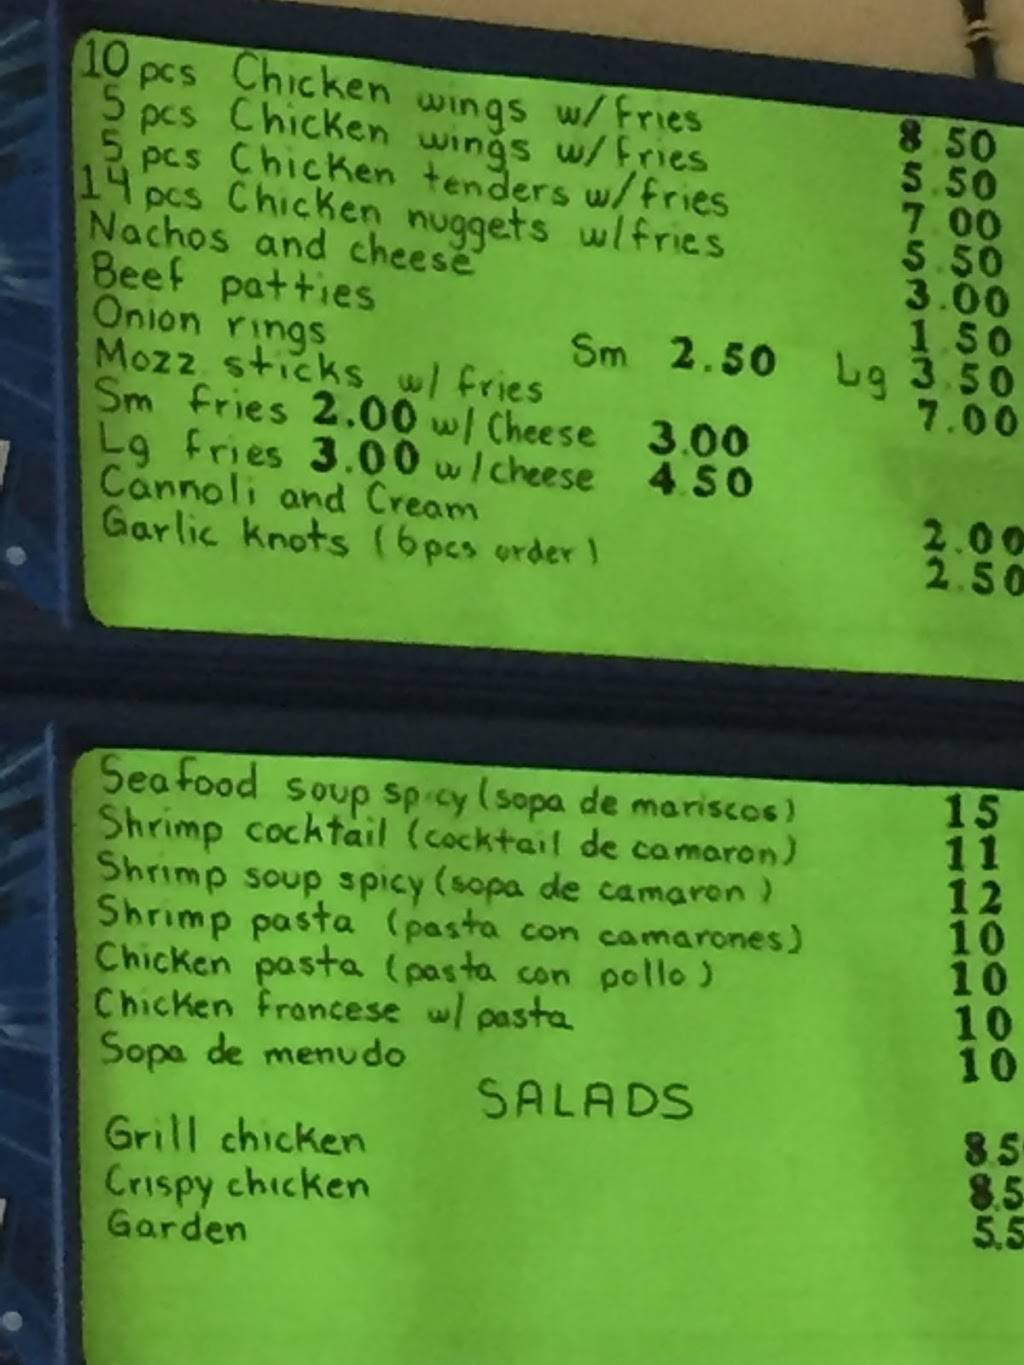 10 pcs Chicken wings w/ fries 8.50
5 pcs Chicken wings w/ fries 5.50
5 pcs Chicken tenders w/fries 7.00
14 pcs Chicken nuggets w/fries 5.50
Nachos and cheese 3.00
Beef patties 1.50
Onion rings Sm 2.50 Lg 3.50
Mozz sticks w/ fries 7.00
Sm fries 2.00 w/ Cheese 3.00
Lg fries 3.00 w/cheese 4.50
Cannoli and Cream 2.00
Garlic knots (6pcs order) 2.50
Seafood soup spicy (sopa de mariscos) 15
Shrimp cocktail (cocktail de camaron) 11
Shrimp soup spicy (sopa de camaron) 12
Shrimp pasta (pasta con camarones) 10
Chicken pasta (pasta con pollo) 10
Chicken francese w/ pasta 10
Sopa de menudo 10
SALADS
Grill chicken 8.5
Crispy chicken 8.5
Garden 5.5